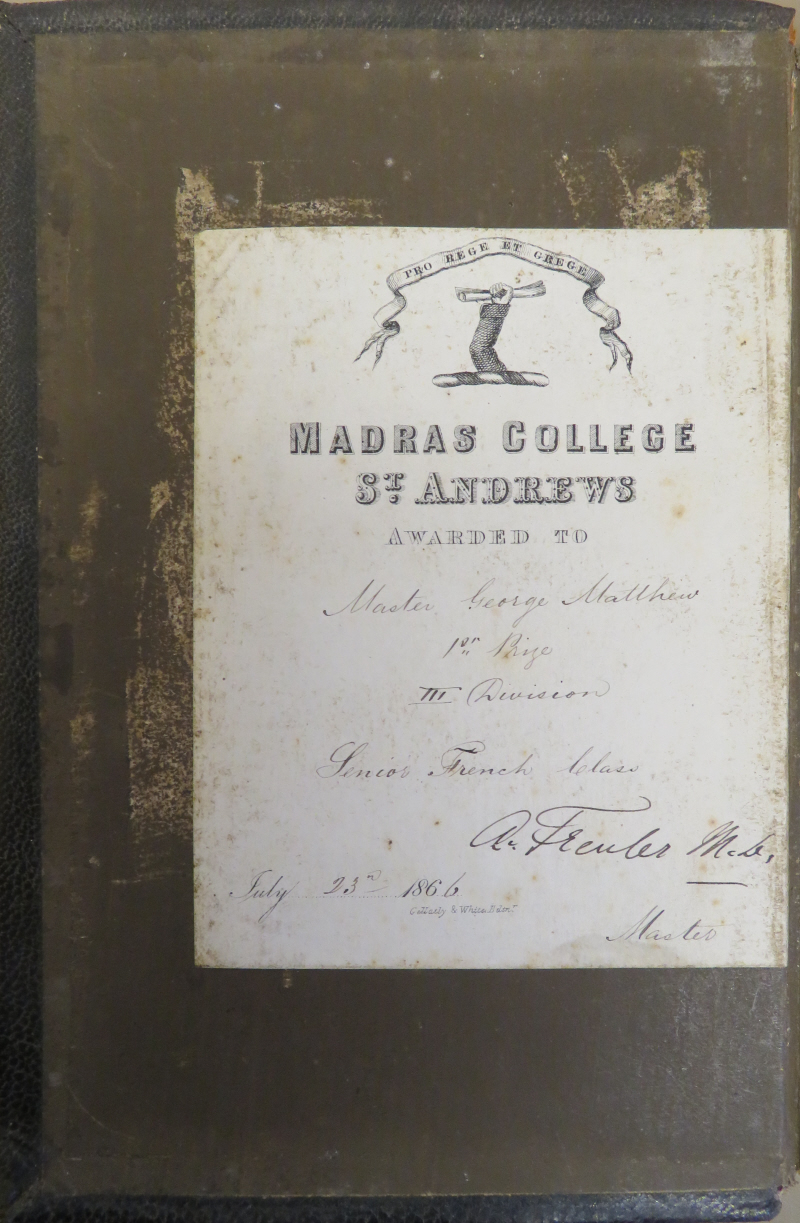 PRO REGE ET GREGE
MADRAS COLLEGE
ST. ANDREWS
AWARDED TO
Master George Matthew
Prize
III Division
Senior French Class
Master
July 23rd 1866
& White